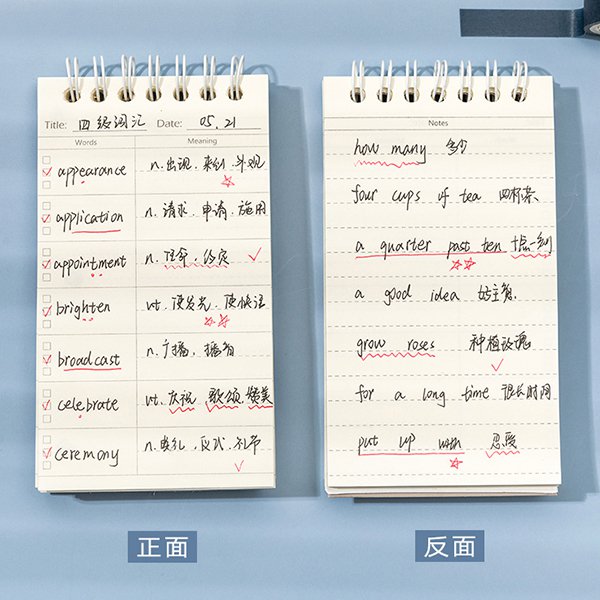 Title: 四级词汇 Date: 05.21
Words Meaning
appearance n.出现.来到.外观
application n.请求.申请.施用
appointment n.任命.约定
brighten vt.使发光.使快活
broadcast n.广播.播音
celebrate vt.庆祝.歌颂.赞美
ceremony n.典礼.仪式.礼节
正面
Notes
how many 多少
four cups of tea 四杯茶
a quarter past ten 十点一刻
a good idea 好主意.
grow roses 种植玫瑰
for a long time 很长时间
put up with 忍受
反面